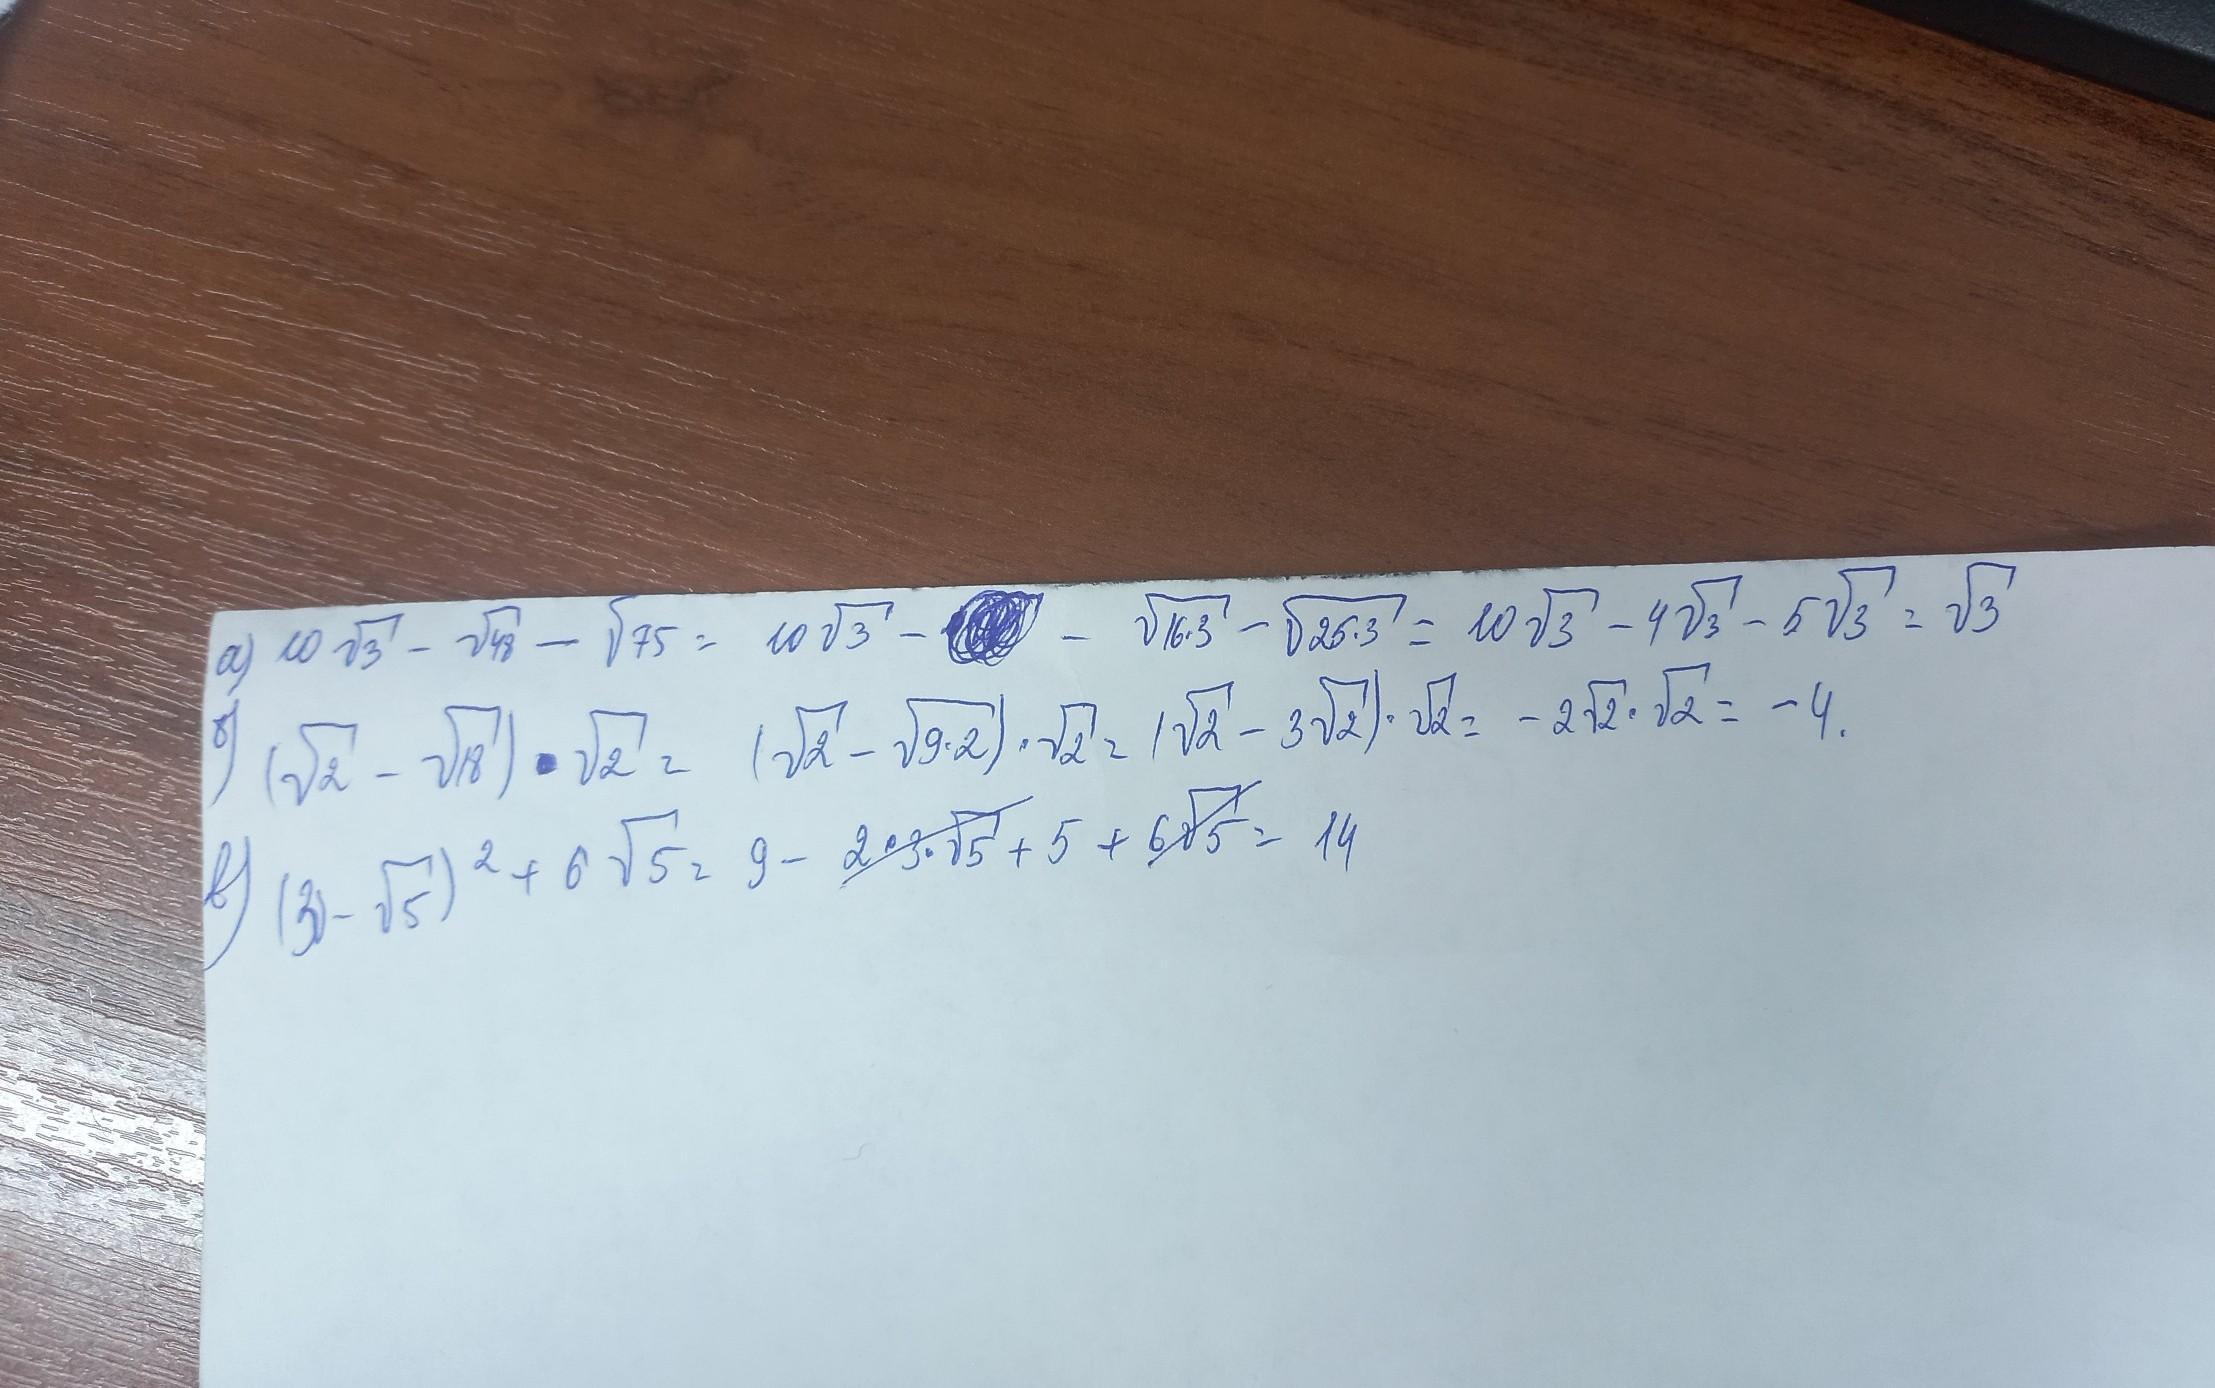 а) 10√3 - √48 - √75 = 10√3 - - √16·3 - √25·3 = 10√3 - 4√3 - 5√3 = √3
б) (√2 - √18) · √2 = (√2 - √9·2) · √2 = (√2 - 3√2) · √2 = -2√2 · √2 = -4.
в) (3 - √5)² + 6√5 = 9 - 2·3·√5 + 5 + 6√5 = 14